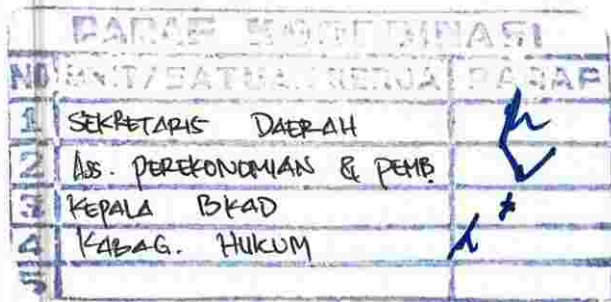 PARAF KOORDINASI
NO UNIT/SATUAN KERJA PARAF
1 SEKRETARIS DAERAH
2 Ass. PEREKONOMIAN & PEMB.
3 KEPALA BKAD
4 KABAG. HUKUM
5